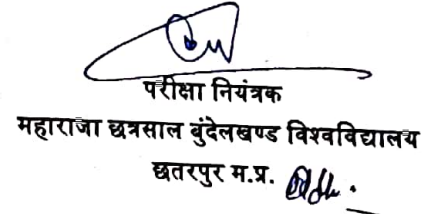 परीक्षा नियंत्रक
महाराजा छत्रसाल बुंदेलखण्ड विश्वविद्यालय
छतरपुर म.प्र.